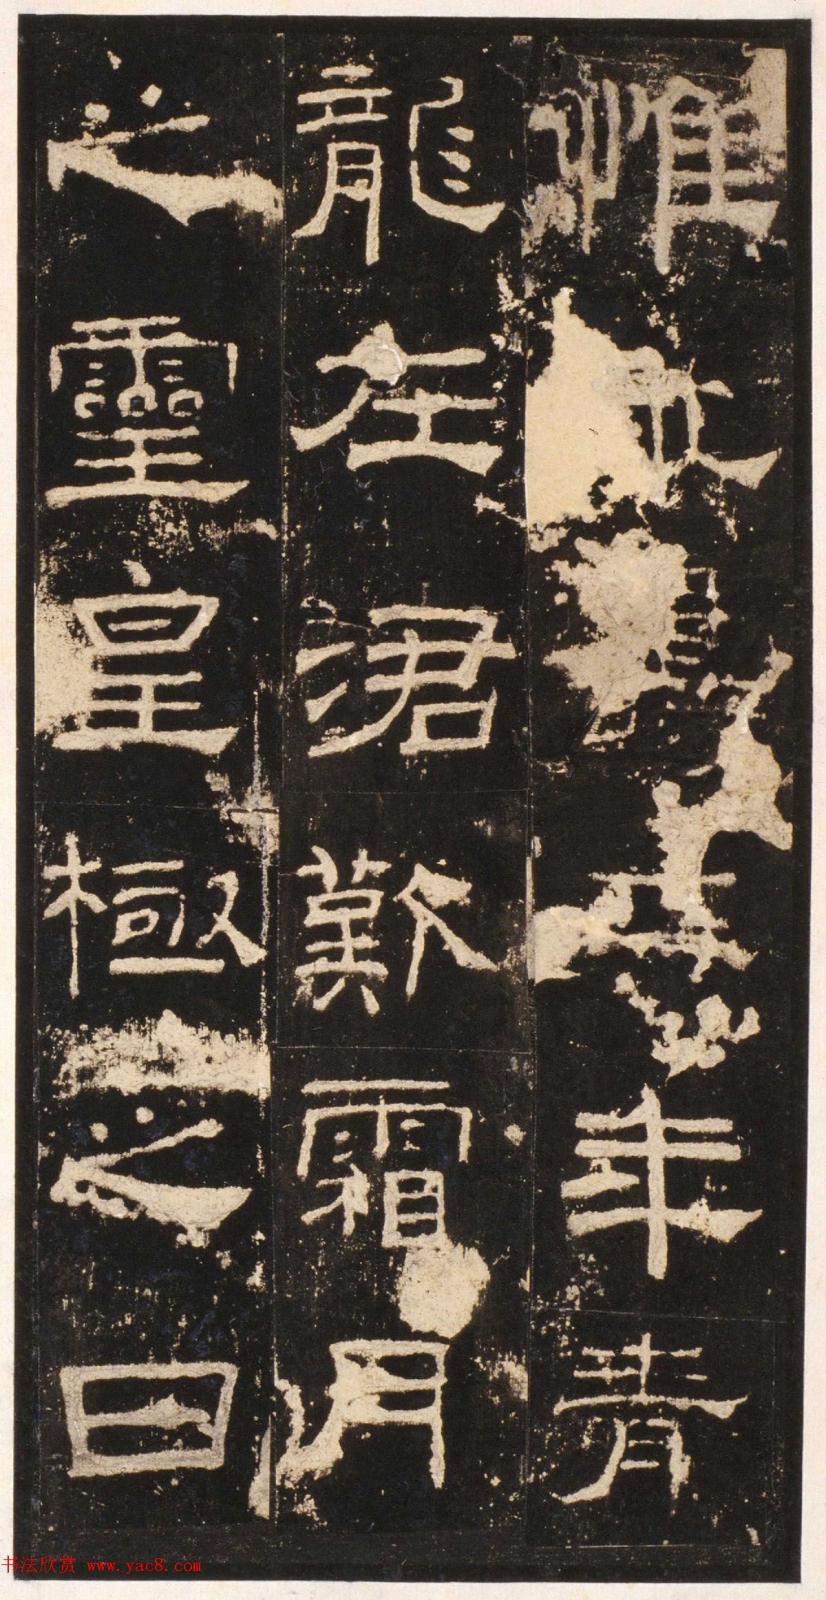 惟年青
龍在涒歎霜月
之靈皇極之日
书法欣赏 www.yac8.com